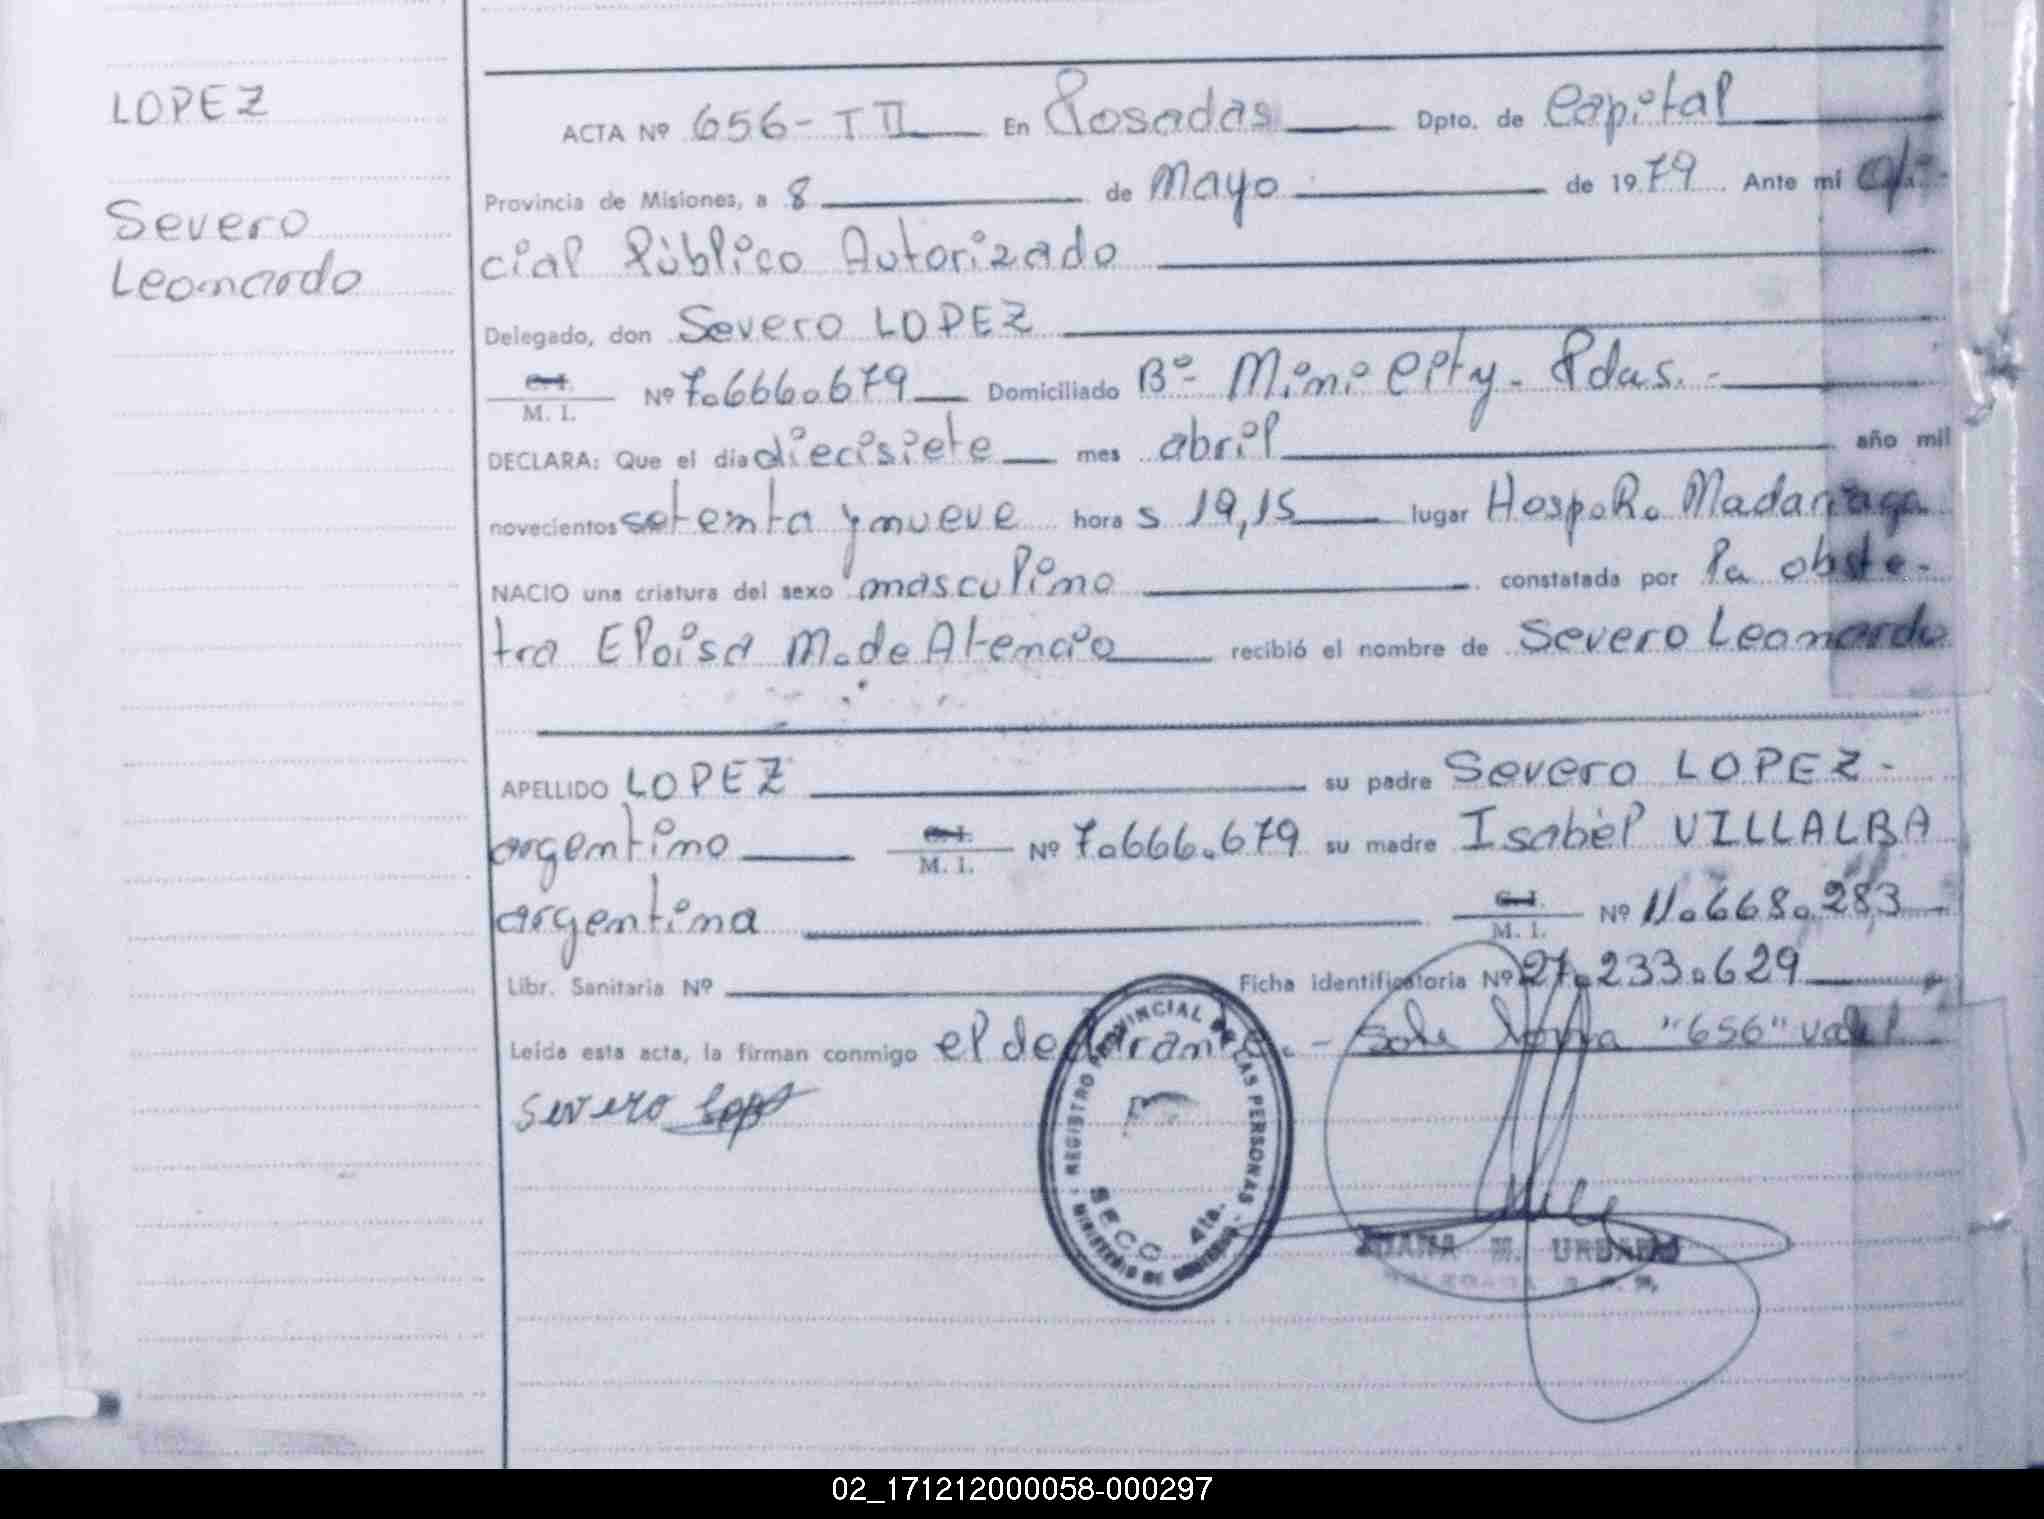 LOPEZ
Severo
Leonardo
ACTA Nº 656-TII En Posadas Dpto. de Capital
Provincia de Misiones, a 8 de Mayo de 1979 Ante mi Ofi-
cial Público Autorizado
Delegado, don Severo LOPEZ
C. I. M. I. Nº 7.666.679 Domiciliado Bº- Mini City- Pdas.-
DECLARA: Que el día diecisiete mes abril año mil
novecientos setenta y nueve hora s 19,15 lugar Hosp.R. Madariaga
NACIO una criatura del sexo masculino constatada por la obste-
tra Eloisa M. de Atencio recibió el nombre de Severo Leonardo
APELLIDO LOPEZ su padre Severo LOPEZ-
argentino C. I. M. I. Nº 7.666.679 su madre Isabel VILLALBA
argentina C. I. M. I. Nº 11.668.283
Libr. Sanitaria Nº Ficha identificatoria Nº 27.233.629
Leída esta acta, la firman conmigo el declarante.- "656" vale
Severo Lopez
REGISTRO PROVINCIAL DE LAS PERSONAS
SECC. 4ta.
MINISTERIO DE GOBIERNO
M. URBANO
02_171212000058-000297